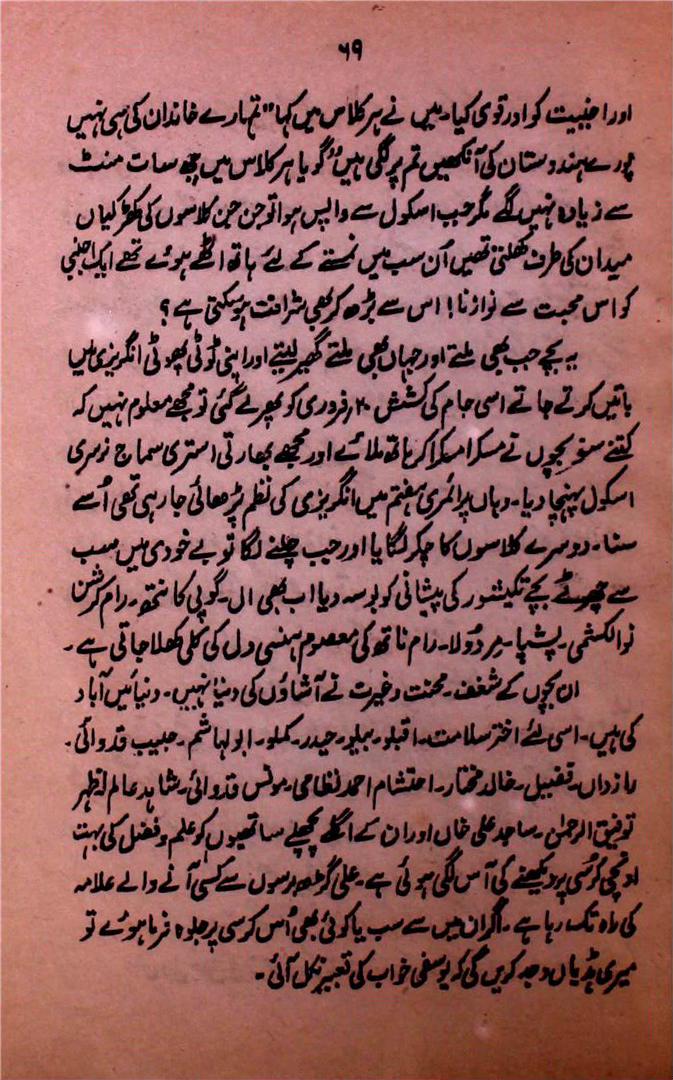 ۶۹
اور اجنبیت کو اور قوی کیا۔ میں نے ہر کلاس میں کہا "تمہارے خاندان کی سی نہیں
پورے ہندوستان کی آنکھیں تم پر لگی ہیں" گویا ہر کلاس میں چھ سات منٹ
سے زیادہ نہیں لگے مگر جب اسکول سے واپس ہوا تو جن جن کلاسوں کی کھڑکیاں
میدان کی طرف کھلتی تھیں اُن سب میں نمستے کے لئے ہاتھ اٹھے ہوئے تھے ایک اجنبی
کو اس محبت سے نوازنا! اس سے بڑھ کر بھی شرافت ہو سکتی ہے؟
یہ بچے جب بھی ملتے اور جہاں بھی ملتے گھیر لیتے اور اپنی ٹوٹی پھوٹی انگریزی میں
باتیں کرتے جاتے اسی جام کی کشش ۲۰ فروری کو پھر لے گئی تو مجھے معلوم نہیں کہ
کتنے سو بچوں نے مسکرا مسکرا کر ہاتھ ملائے اور مجھے بھارتی استری سماج نرسری
اسکول پہنچا دیا۔ وہاں پرائمری ہفتم میں انگریزی کی نظم پڑھائی جا رہی تھی اُسے
سنا۔ دوسرے کلاسوں کا چکر لگایا اور جب چلنے لگا تو بے خودی میں سب
سے چھوٹے بچے نکیشور کی پیشانی کو بوسہ دیا اب بھی ال۔ گوپی کا نتھ۔ رام کرشن
نوالکشمی۔ پشپا۔ مردولا۔ رام ناتھ کی معصوم ہنسی دل کی کلی کھلا جاتی ہے۔
ان بچوں کے شغف۔ محنت و غیرت نے آشاؤں کی دنیا نہیں۔ دنیائیں آباد
کی ہیں۔ اسی لئے اختر سلامت۔ اقبلو۔ ببلو۔ حیدر۔ کملو۔ ابو الہاشم۔ حبیب قدوائی۔
رازداں۔ فضیل۔ خالد مختار۔ احتشام احمد نظامی۔ مونس قدوائی۔ شاہد عالم اظہر
توفیق الرحمٰن۔ ساجد علی خاں اور ان کے اگلے پچھلے ساتھیوں کو علم و فضل کی بہت
اونچی کرسی پر دیکھنے کی آس لگی ہوئی ہے۔ علی گڑھ برسوں سے کسی آنے والے علامہ
کی راہ تک رہا ہے۔ اگر ان میں سے سب یا کوئی بھی اُس کرسی پر جلوہ فرما ہوئے تو
میری ہڈیاں وجد کریں گی کہ یوسفی خواب کی تعبیر نکل آئی۔